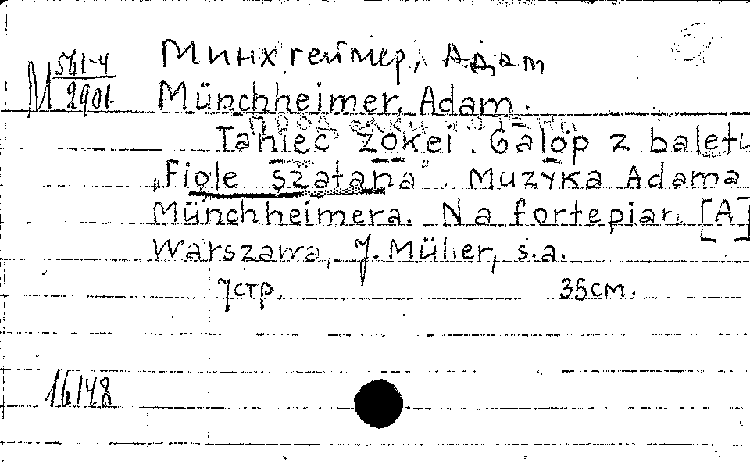 Минхгеймер, Адам
М 561-4
2901
Münchheimer, Adam.
Taniec żokei. Galop z baletu
„Figle szatana". Muzyka Adama
Münchheimera. Na fortepian. [A]
Warszawa, J. Müller, s.a.
7 стр. 35 см.
16148